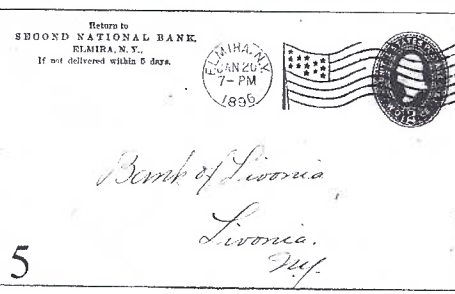 Return to
SECOND NATIONAL BANK,
ELMIRA, N. Y.,
If not delivered within 5 days.
ELMIRA, N.Y.
JAN 20
7-PM
1896
Bank of Livonia
Livonia.
NY.
5